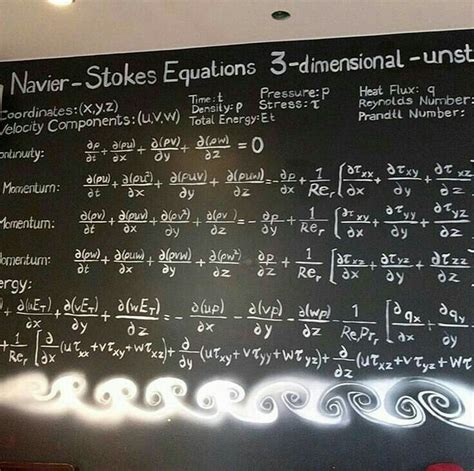 Navier-Stokes Equations 3-dimensional-unst
Coordinates:(x,y,z) Time:t Pressure:p Heat Flux: q
Velocity Components:(u,v,w) Density:ρ Stress:τ Reynolds Number:
Total Energy:Et Prandtl Number:
ontinuity: ∂ρ/∂t + ∂(ρu)/∂x + ∂(ρv)/∂y + ∂(ρw)/∂z = 0
Momentum: ∂(ρu)/∂t + ∂(ρu²)/∂x + ∂(ρuv)/∂y + ∂(ρuw)/∂z = -∂p/∂x + 1/Re_r [∂τ_xx/∂x + ∂τ_xy/∂y + ∂τ_xz/∂z
Momentum: ∂(ρv)/∂t + ∂(ρuv)/∂x + ∂(ρv²)/∂y + ∂(ρvw)/∂z = -∂p/∂y + 1/Re_r [∂τ_xy/∂x + ∂τ_yy/∂y + ∂τ_yz/∂z
omentum: ∂(ρw)/∂t + ∂(ρuw)/∂x + ∂(ρvw)/∂y + ∂(ρw²)/∂z = -∂p/∂z + 1/Re_r [∂τ_xz/∂x + ∂τ_yz/∂y + ∂τ_zz/∂z
ergy:
+ ∂(uE_T)/∂x + ∂(vE_T)/∂y + ∂(wE_T)/∂z = -∂(up)/∂x - ∂(vp)/∂y - ∂(wp)/∂z - 1/Re_rPr_r [∂q_x/∂x + ∂q_y/∂y
+ 1/Re_r [∂/∂x(uτ_xx+vτ_xy+wτ_xz) + ∂/∂y(uτ_xy+vτ_yy+wτ_yz) + ∂/∂z(uτ_xz+vτ_yz+wτ